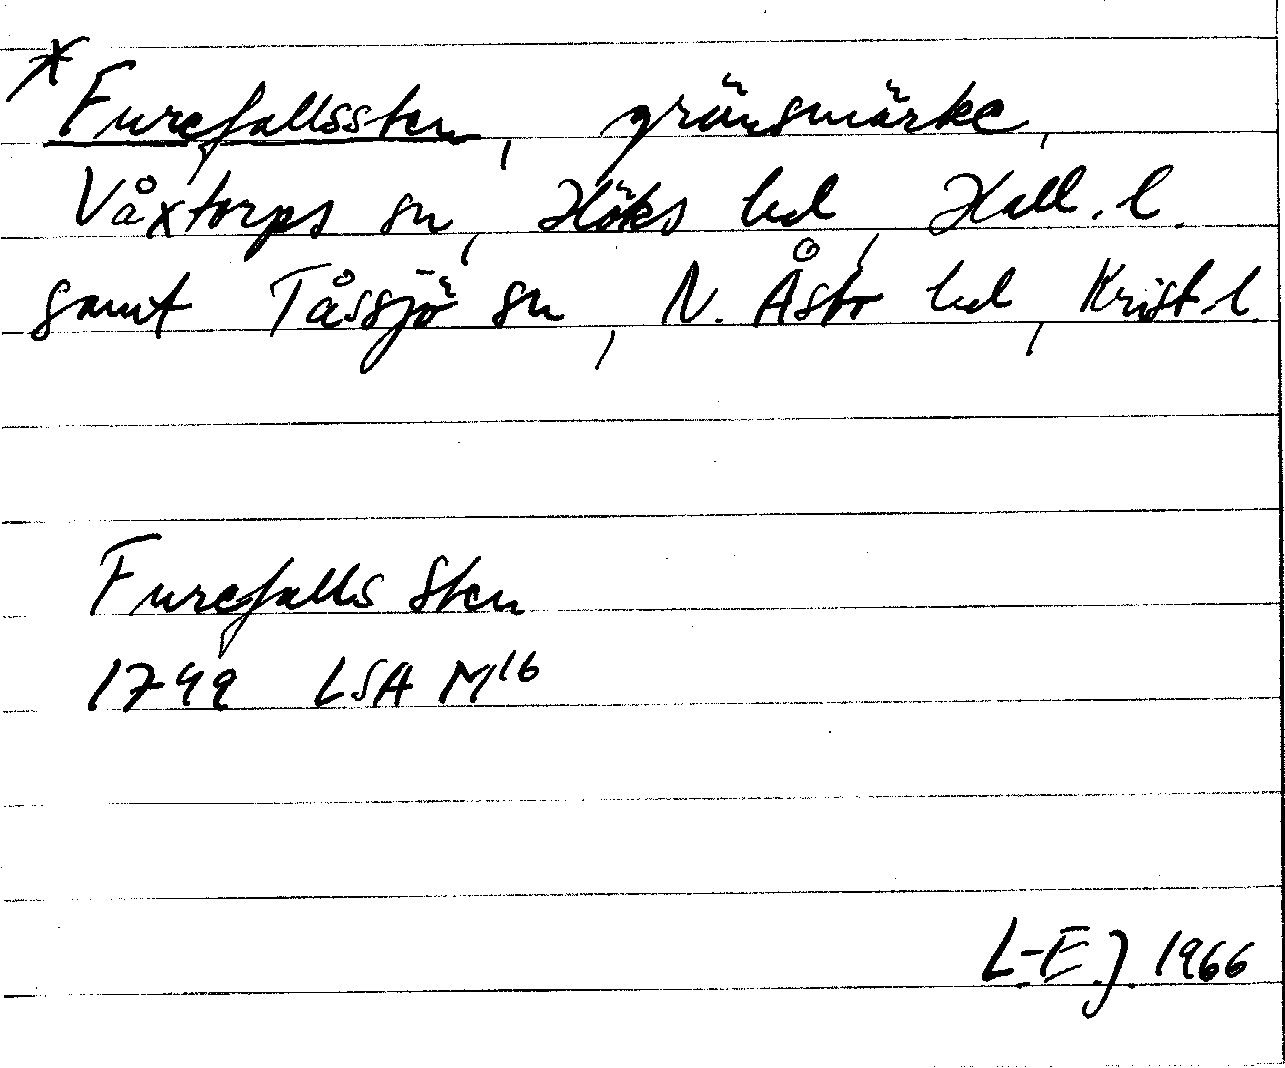 * Furefallssten, gränsmärke,
Våxtorps sn, Höks hd, Hall. l.
samt Tåssjö sn, N. Åsbo hd, Krist. l.
Furefalls Sten
1749 LSA M16
L.-E.J. 1966